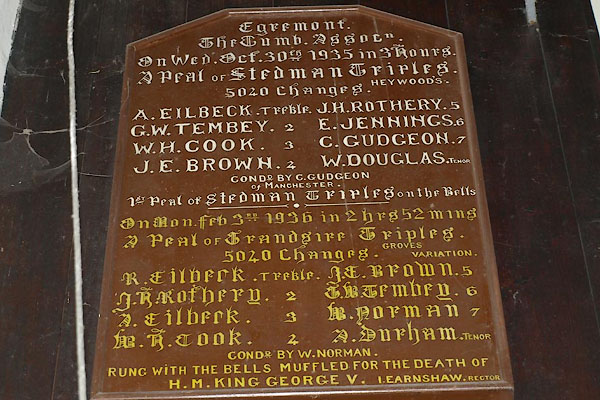 Egremont.
The Cumb. Assocn.
On Wed. Oct. 30th 1935 in 3 Hours.
A Peal of Stedman Triples.
HEYWOODS.
5020 Changes.
A. EILBECK. Treble. J.H. ROTHERY. 5
G.W. TEMBEY. 2 E. JENNINGS. 6
W.H. COOK. 3 C. GUDGEON. 7
J.E. BROWN. 4 W. DOUGLAS. TENOR
CONDR BY C. GUDGEON
of MANCHESTER.
1st Peal of Stedman Triples on the Bells
On Mon. Feb 3rd 1936 in 2 hrs 52 mins
A Peal of Grandsire Triples.
GROVES
5020 Changes. VARIATION.
R. Eilbeck. Treble. J.E. Brown. 5
J.H. Rothery. 2 G.W. Tembey. 6
A. Eilbeck. 3 W. Norman 7
W.H. Cook. 4 A. Durham. TENOR
CONDR BY W. NORMAN.
RUNG WITH THE BELLS MUFFLED FOR THE DEATH OF
H.M. KING GEORGE V. I. EARNSHAW. RECTOR